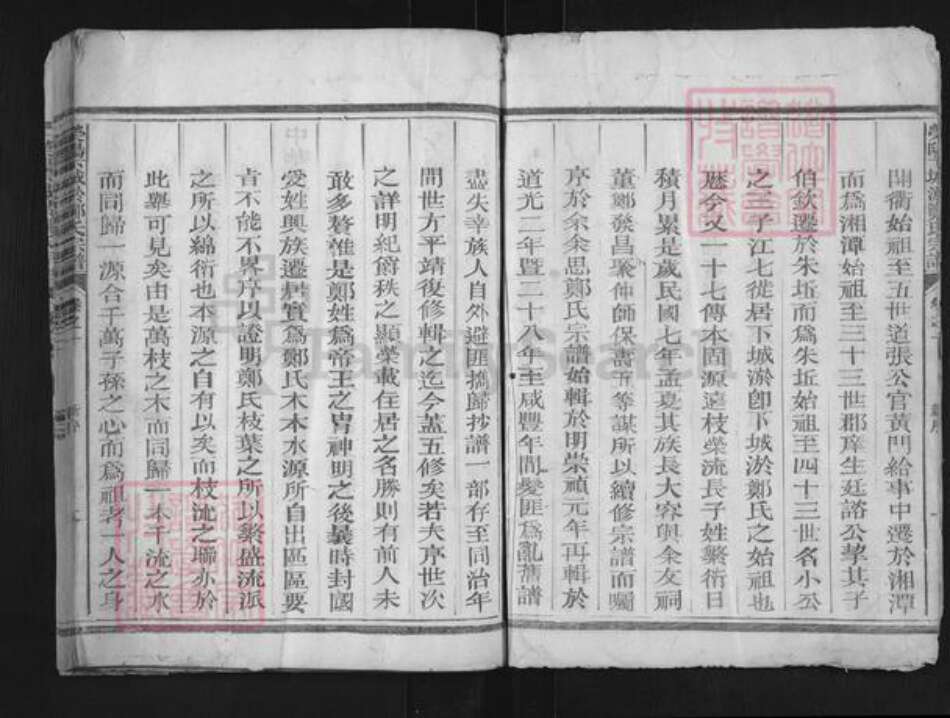 開衢始祖至五世道張公官黃門給事中遷於湘潭
而為湘潭始祖至三十三世郡庠生廷諮公挈其子
伯欽遷於朱坵而為朱坵始祖至四十三世名小公
之三子江七徙居下城淤卽下城淤鄭氏之始祖也
歷今又一十七傳本固源遠枝榮流長子姓繁衍日
積月累是歲民國七年孟夏其族長大容與余友祠
董鄭發昌聚仲師保壽玉等謀所以續修宗譜而囑
序於余余思鄭氏宗譜始輯於明崇禎元年再輯於
道光二年暨二十八年至咸豐年間髮匪為亂舊譜
盡失幸族人自外避匪攜歸抄譜一部存至同治年
間世方平靖復修輯之迄今蓋五修矣若夫序世次
之詳明紀爵秩之顯榮載住居之名勝則有前人未
敢多贅惟是鄭姓為帝王之冑神明之後曩時封國
受姓興族遷居實為鄭氏木本水源所自出區區要
旨不能不畀序以證明鄭氏枝葉之所以繁盛流派
之所以綿衍也本源之自有以矣而枝流之聯亦於
此舉可見矣由是萬枝之木而同歸一本千流之水
而同歸一源合千萬子孫之心而為祖考一人之身
FamilySearch